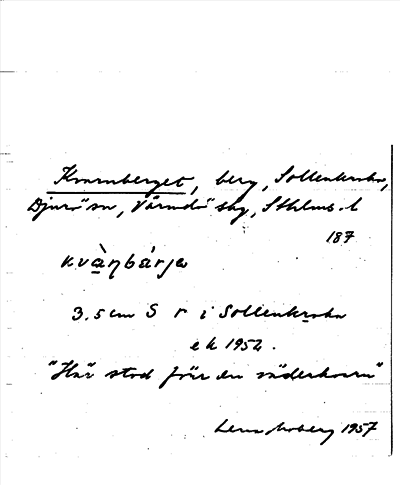 Kvarnberget, berg, Sollenkroka,
Djurö sn, Värmdö skg, Sthlms. l
187
kvàηbárja
3.5 cm S r i Sollenkroka
ek 1952.
"Här stod förr en väderkvarn"
Lena Moberg 1957